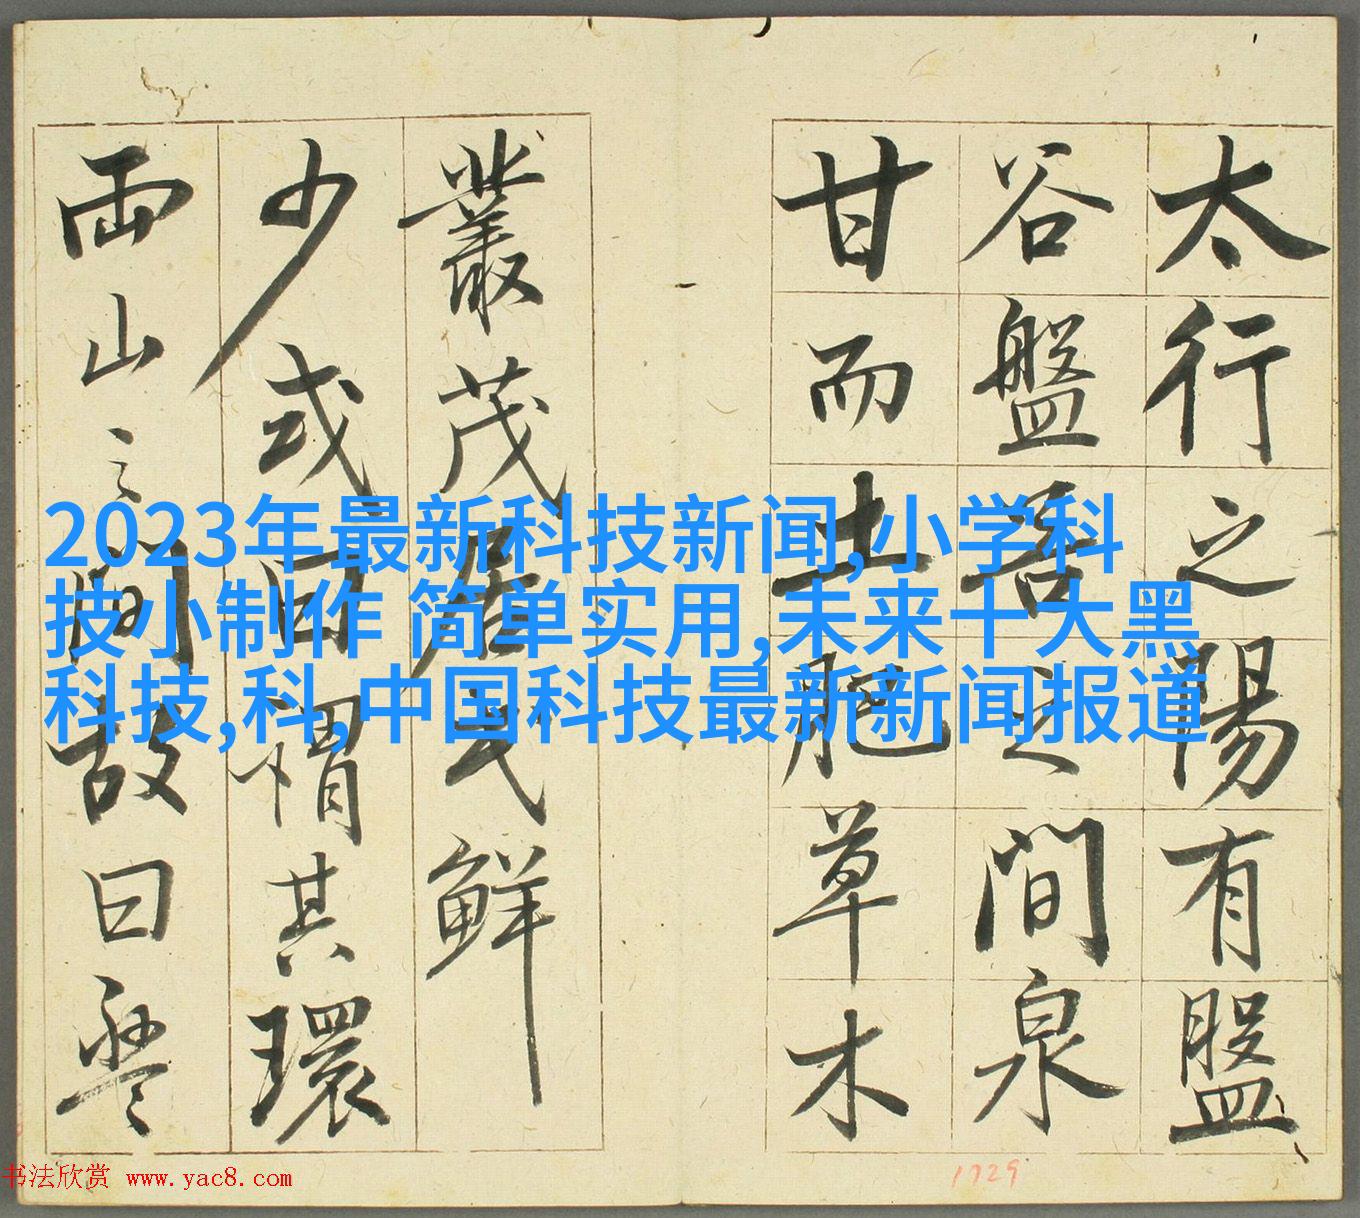 太行之陽有盤
谷盤谷之間泉
甘而土肥草木
叢茂居民鮮
少或曰謂其環
兩山之間故曰盤
2023年最新科技新闻,小学科
技小制作 简单实用,未来十大黑
科技,科,中国科技最新新闻报道
书法欣赏 www.yac8.com
1729